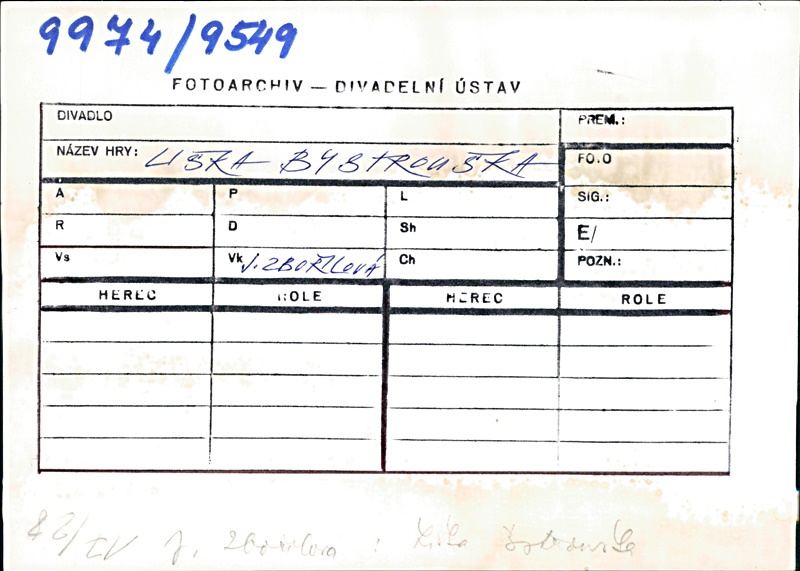 9974/9549
FOTOARCHIV — DIVADELNÍ ÚSTAV
DIVADLO
PREM.:
NÁZEV HRY: LIŠKA BYSTROUŠKA
FOTO
A P L
SIG.:
R D Sh
E/
Vs Vk J. ZBOŘILOVÁ Ch
POZN.:
HEREC ROLE HEREC ROLE
J. Zbořilova : Liška Bystrouška